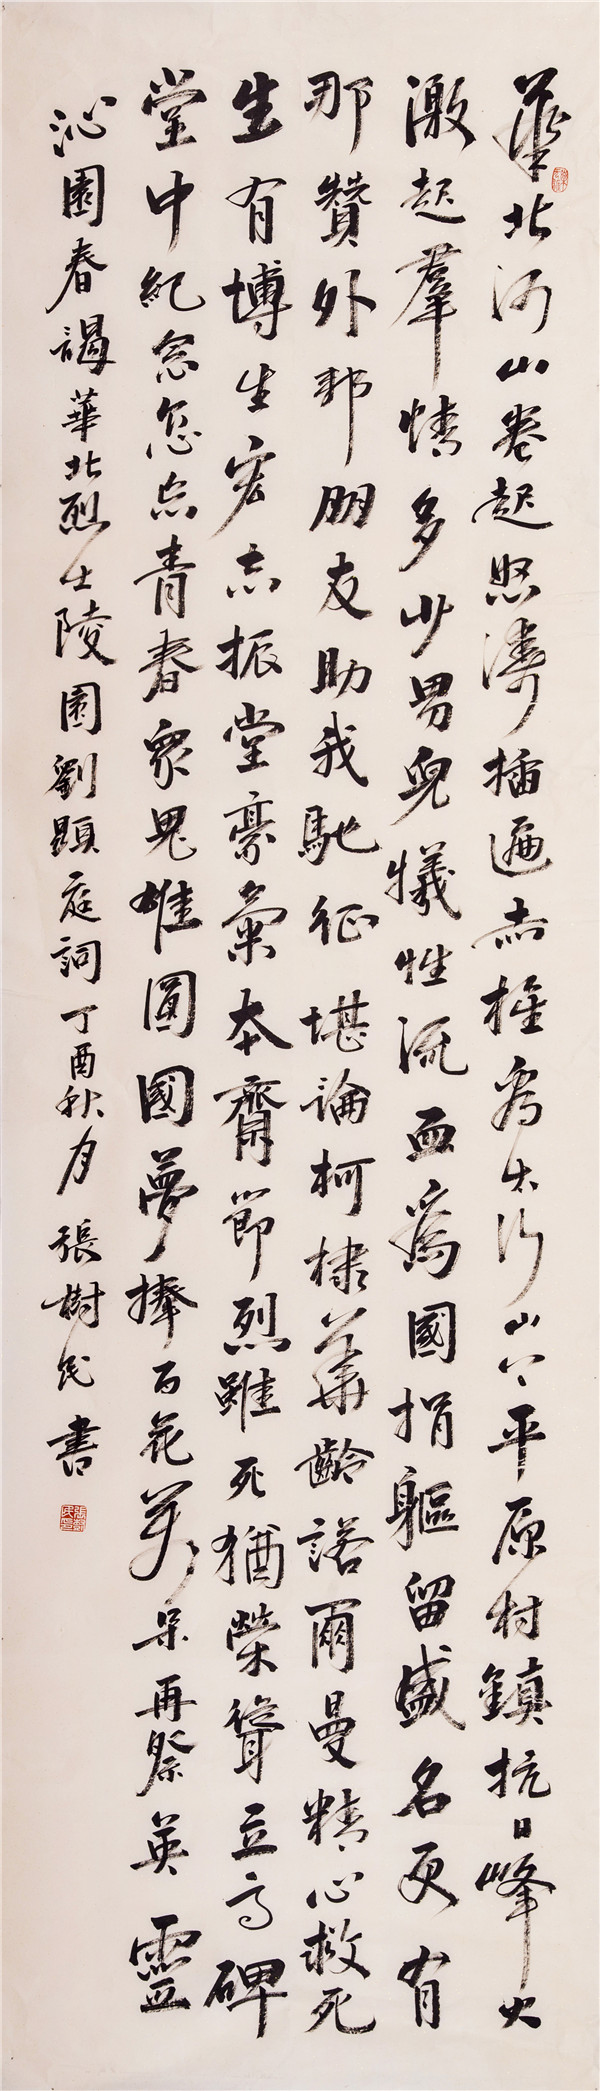 華北河山卷起怒濤插遍赤旌看太行山上平原村鎮抗日峰火
激起羣情多少男兒犧牲流血爲國捐軀留盛名更有
那贊外邦朋友助我馳征堪論柯棣華齡諾爾曼精心救死
生有博生宏志振堂豪氣本齋節烈雖死猶榮聳立高碑
堂中紀念忽忘青春衆鬼雄圓國夢捧百花萬朵再祭英靈
沁園春謁華北烈士陵園劉顯庭詞丁酉秋月張樹民書